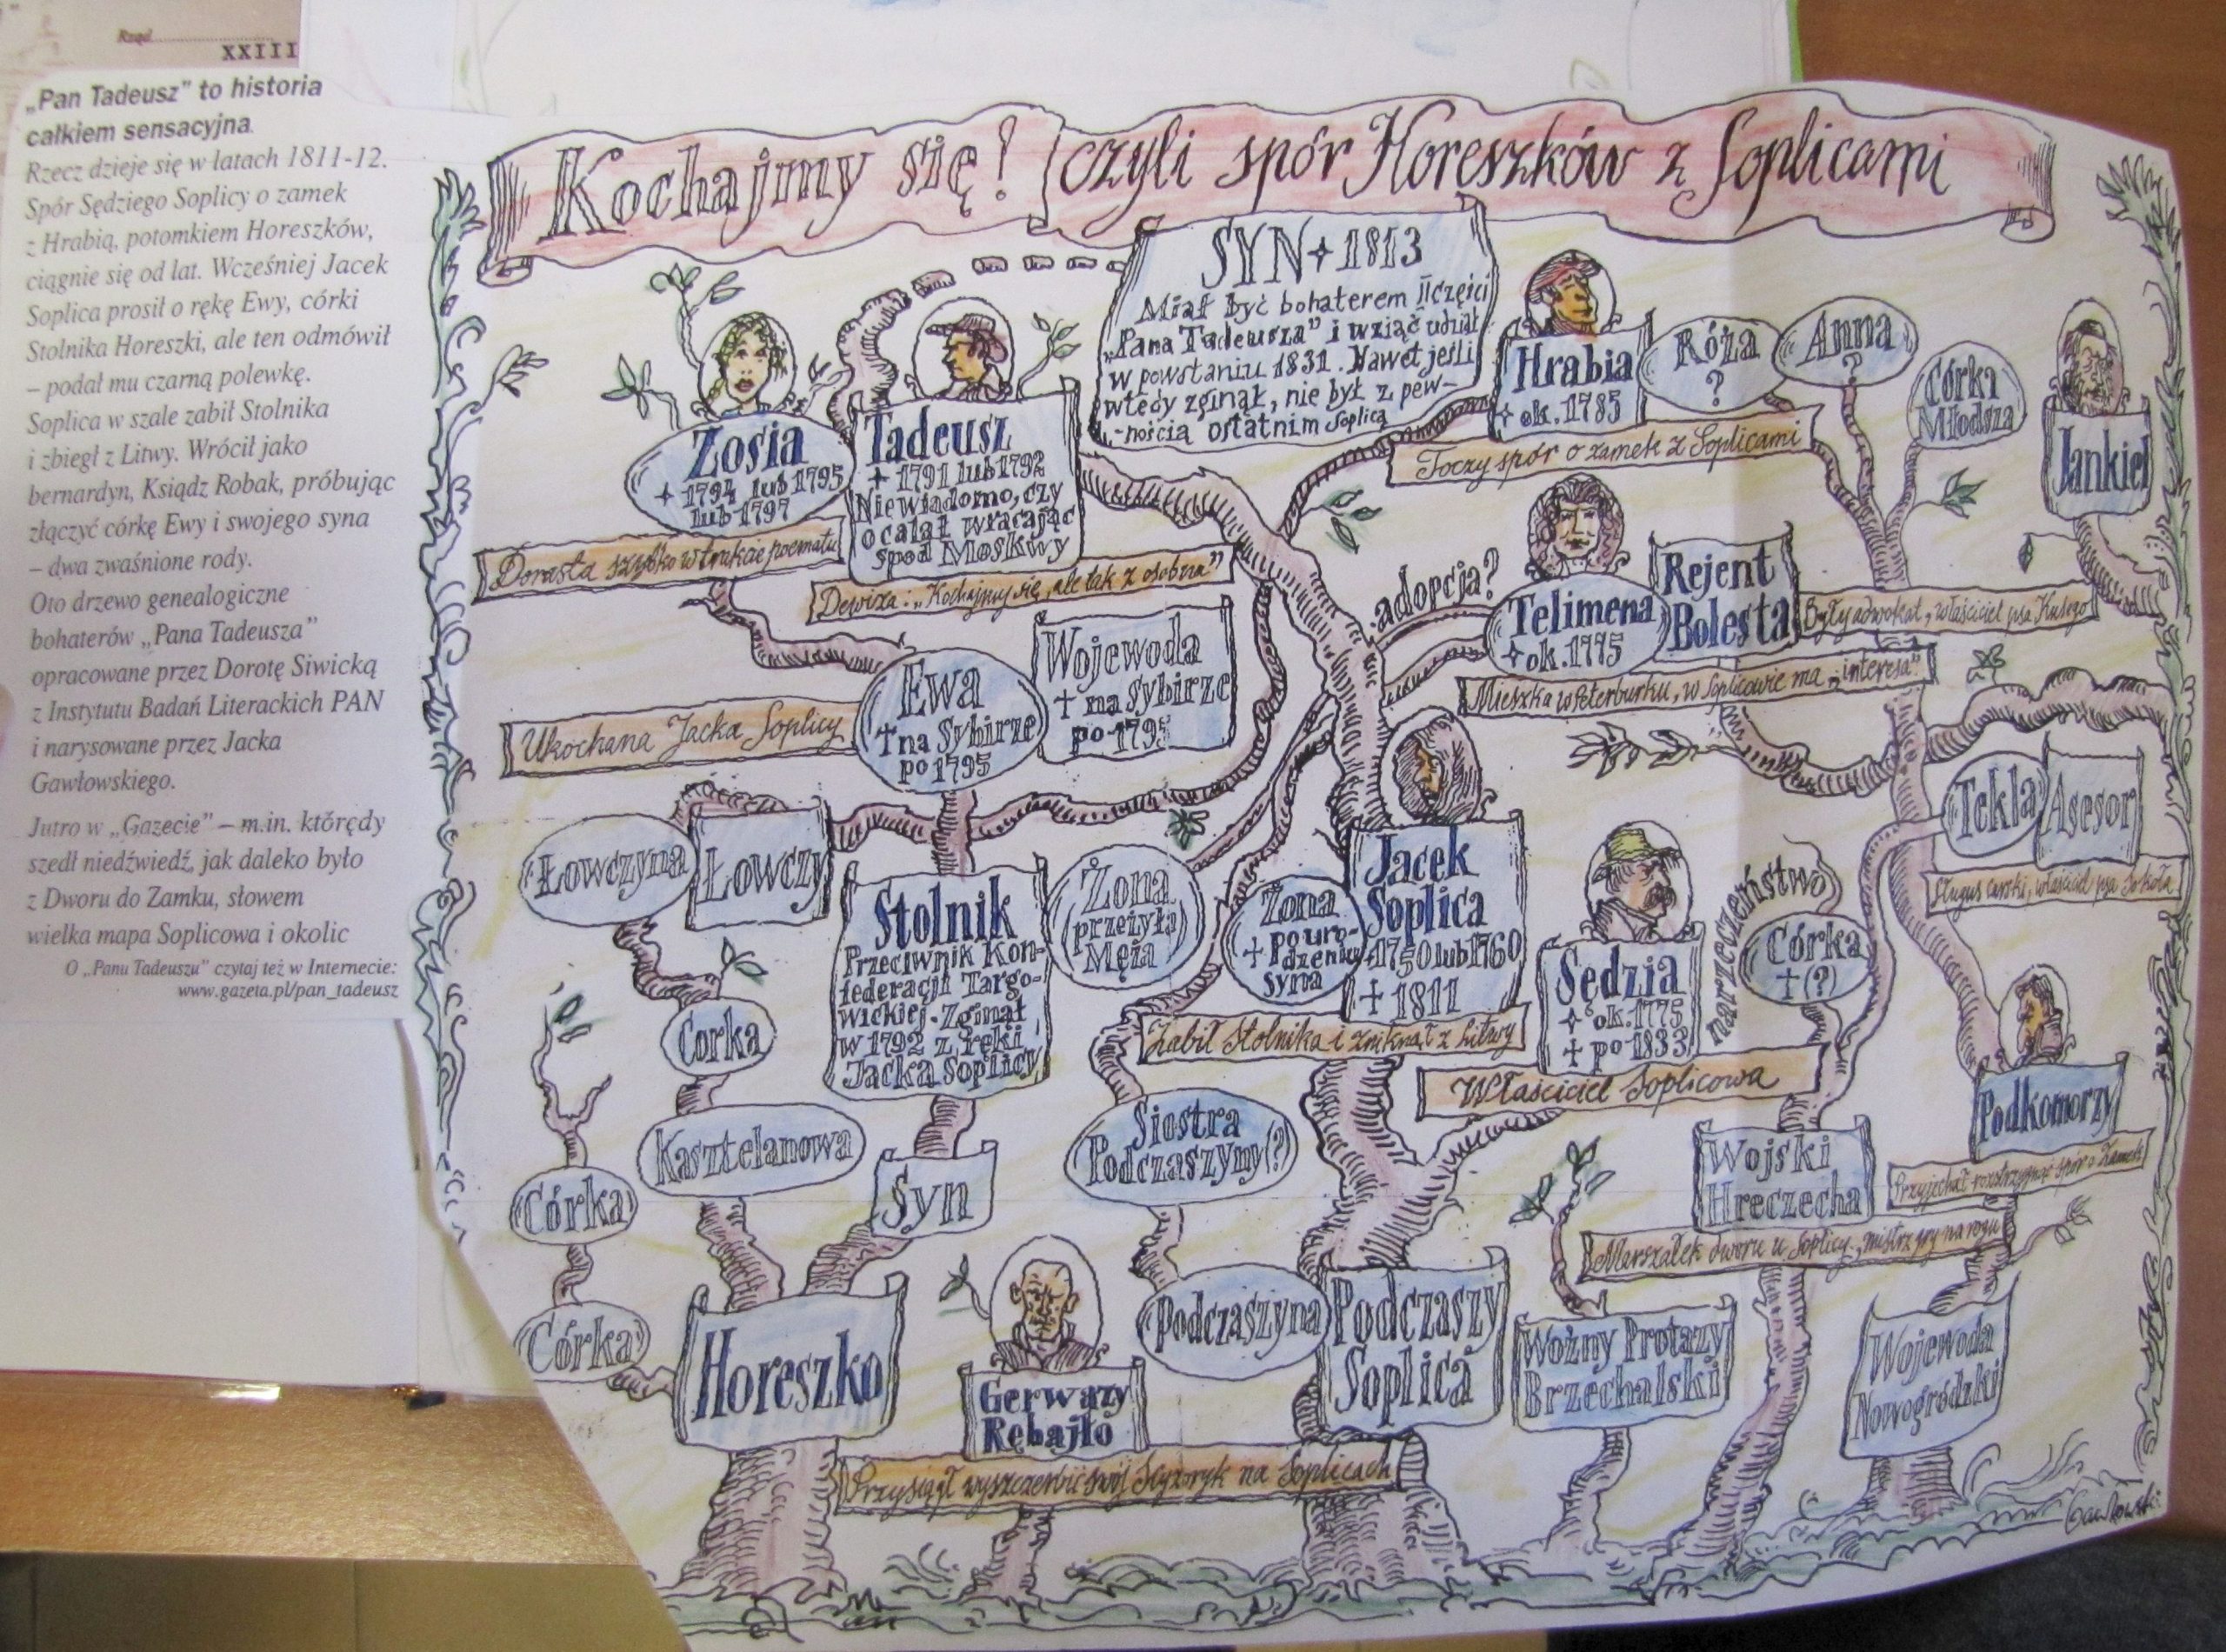 Rząd
XXIII
„Pan Tadeusz” to historia
całkiem sensacyjna.
Rzecz dzieje się w latach 1811-12.
Spór Sędziego Soplicy o zamek
z Hrabią, potomkiem Horeszków,
ciągnie się od lat. Wcześniej Jacek
Soplica prosił o rękę Ewy, córki
Stolnika Horeszki, ale ten odmówił
– podał mu czarną polewkę.
Soplica w szale zabił Stolnika
i zbiegł z Litwy. Wrócił jako
bernardyn, Ksiądz Robak, próbując
złączyć córkę Ewy i swojego syna
– dwa zwaśnione rody.
Oto drzewo genealogiczne
bohaterów „Pana Tadeusza”
opracowane przez Dorotę Siwicką
z Instytutu Badań Literackich PAN
i narysowane przez Jacka
Gawłowskiego.
Jutro w „Gazecie” – m.in. którędy
szedł niedźwiedź, jak daleko było
z Dworu do Zamku, słowem
wielka mapa Soplicowa i okolic
O „Panu Tadeuszu” czytaj też w Internecie:
www.gazeta.pl/pan_tadeusz
Kochajmy się! czyli spór Horeszków z Soplicami
SYN + 1813
Miał być bohaterem II części
„Pana Tadeusza” i wziąć udział
w powstaniu 1831. Nawet jeśli
wtedy zginął, nie był z pew-
-nością ostatnim Soplicą
Hrabia
+ ok. 1785
Róża
?
Anna
?
Córka
Młodsza
Jankiel
Toczy spór o zamek z Soplicami
Zosia
+ 1794 lub 1795
lub 1797
Tadeusz
+ 1791 lub 1792
Niewiadomo, czy
ocalał wracając
spod Moskwy
Dorasta szybko w trakcie poematu
Dewiza: „Kochajmy się, ale tak z osobna”
adopcja?
Telimena
+ ok. 1775
Rejent
Bolesta
Były adwokat, właściciel psa Kusego
Mieszka w Peterburku, w Soplicowie ma „interesa”
Ewa
+ na Sybirze
po 1795
Wojewoda
+ na Sybirze
po 1795
Ukochana Jacka Soplicy
Tekla
Asesor
Sługus carski, właściciel psa Sokoła
Łowczyna
Łowczy
Stolnik
Przeciwnik Kon-
federacji Targo-
wickiej. Zginął
w 1792 z ręki
Jacka Soplicy
Żona
(przeżyła
Męża
Żona
+ po uro-
dzeniu
syna
Jacek
Soplica
+1750 lub 1760
+ 1811
Zabił Stolnika i zniknął z Litwy
Sędzia
+ ok. 1775
+ po 1833
Właściciel Soplicowa
narzeczeństwo
Córka
+ (?)
Podkomorzy
Przyjechał rozstrzygnąć spór o Zamek
Corka
Kasztelanowa
Syn
Siostra
Podczaszyny(?)
Wojski
Hreczecha
Marszałek dworu u Soplicy, mistrz gry na rogu
Córka
Córka
Horeszko
Gerwazy
Rębajło
Przysiągł wyszczerbić swój Scyzoryk na Soplicach
Podczaszyna
Podczaszy
Soplica
Woźny Protazy
Brzechalski
Wojewoda
Nowogródzki
Gawłowski